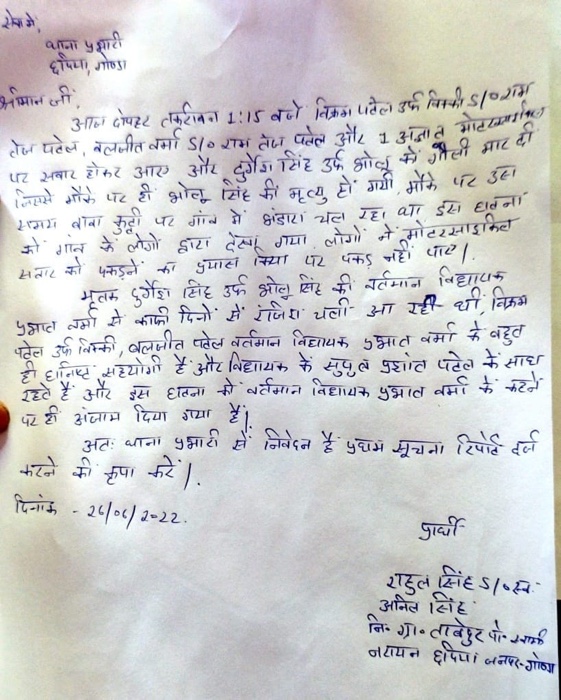 सेवा में,
थाना प्रभारी
छपिया, गोण्डा
श्रीमान जी,
आज दोपहर तकरीबन 1:15 बजे विक्रम पटेल उर्फ विक्की S/o राम
तेज पटेल, बलजीत वर्मा S/o राम तेज पटेल और 1 अज्ञात मोटरसाइकिल
पर सवार होकर आए और दुर्गेश सिंह उर्फ भोलू को गोली मार दी
जिससे मौके पर ही भोलू सिंह की मृत्यु हो गयी, मौके पर उस
समय बाबा कुटी पर गांव में भंडारा चल रहा था इस घटना
को गांव के लोगों द्वारा देखा गया लोगों ने मोटरसाइकिल
सवार को पकड़ने का प्रयास किया पर पकड़ नहीं पाए।
मृतक दुर्गेश सिंह उर्फ भोलू सिंह की वर्तमान विधायक
प्रभात वर्मा से काफी दिनों से रंजिश चली आ रही थी, विक्रम
पटेल उर्फ विक्की, बलजीत पटेल वर्तमान विधायक प्रभात वर्मा के बहुत
ही घनिष्ट सहयोगी हैं और विधायक के सुपुत्र प्रशांत पटेल के साथ
रहते हैं और इस घटना को वर्तमान विधायक प्रभात वर्मा के कहने
पर ही अंजाम दिया गया है।
अतः थाना प्रभारी से निवेदन है प्रथम सूचना रिपोर्ट दर्ज
करने की कृपा करें।
दिनांक - 26/06/2022.
प्रार्थी
राहुल सिंह S/o स्व.
अनिल सिंह
नि. ग्रा. ताबेपुर पो.
नरायन छपिया जनपद-गोण्डा